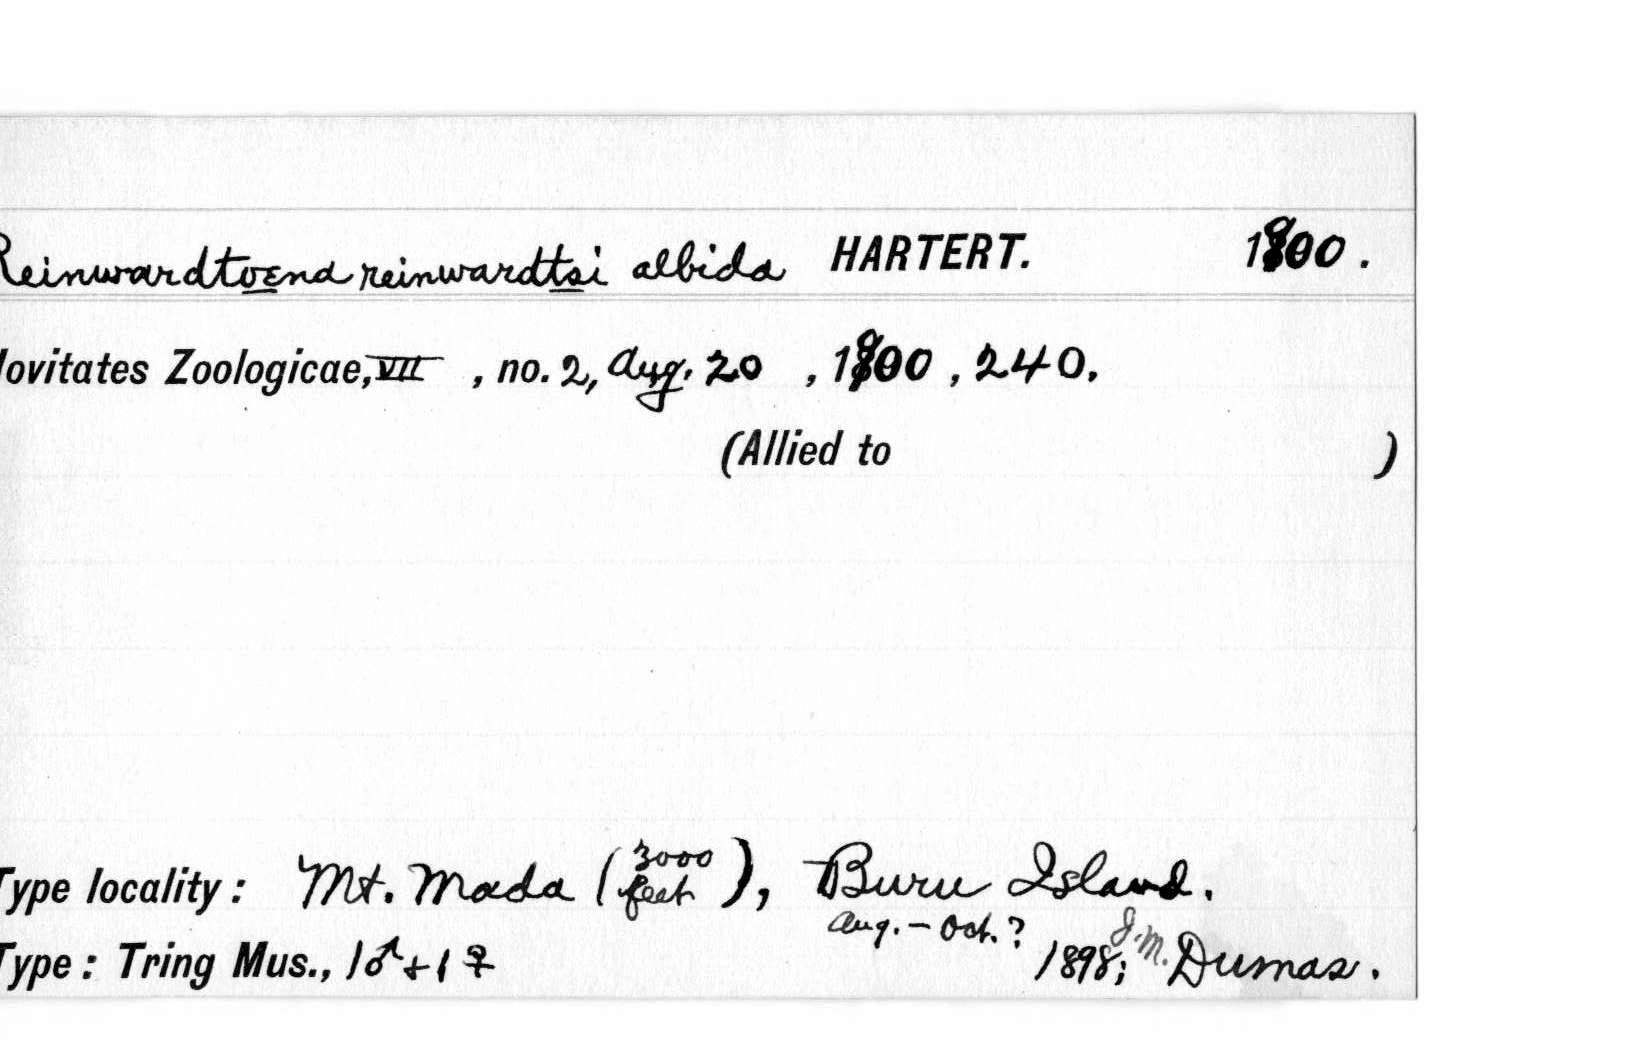 Reinwardtoena reinwardtsi albida HARTERT. 1900.
Novitates Zoologicae, VII, no. 2, Aug. 20, 1900, 240.
(Allied to )
Type locality: Mt. Mada (3000 feet), Buru Island.
Aug. - Oct.? 1898; J.M. Dumas.
Type: Tring Mus., 1♂+1♀